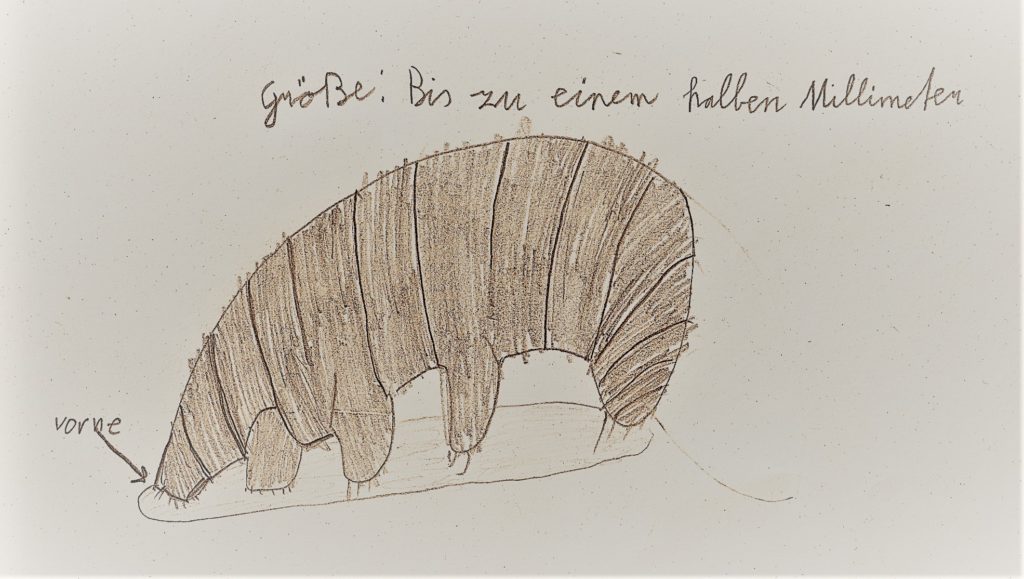 Größe: Bis zu einem halben Millimeter
vorne